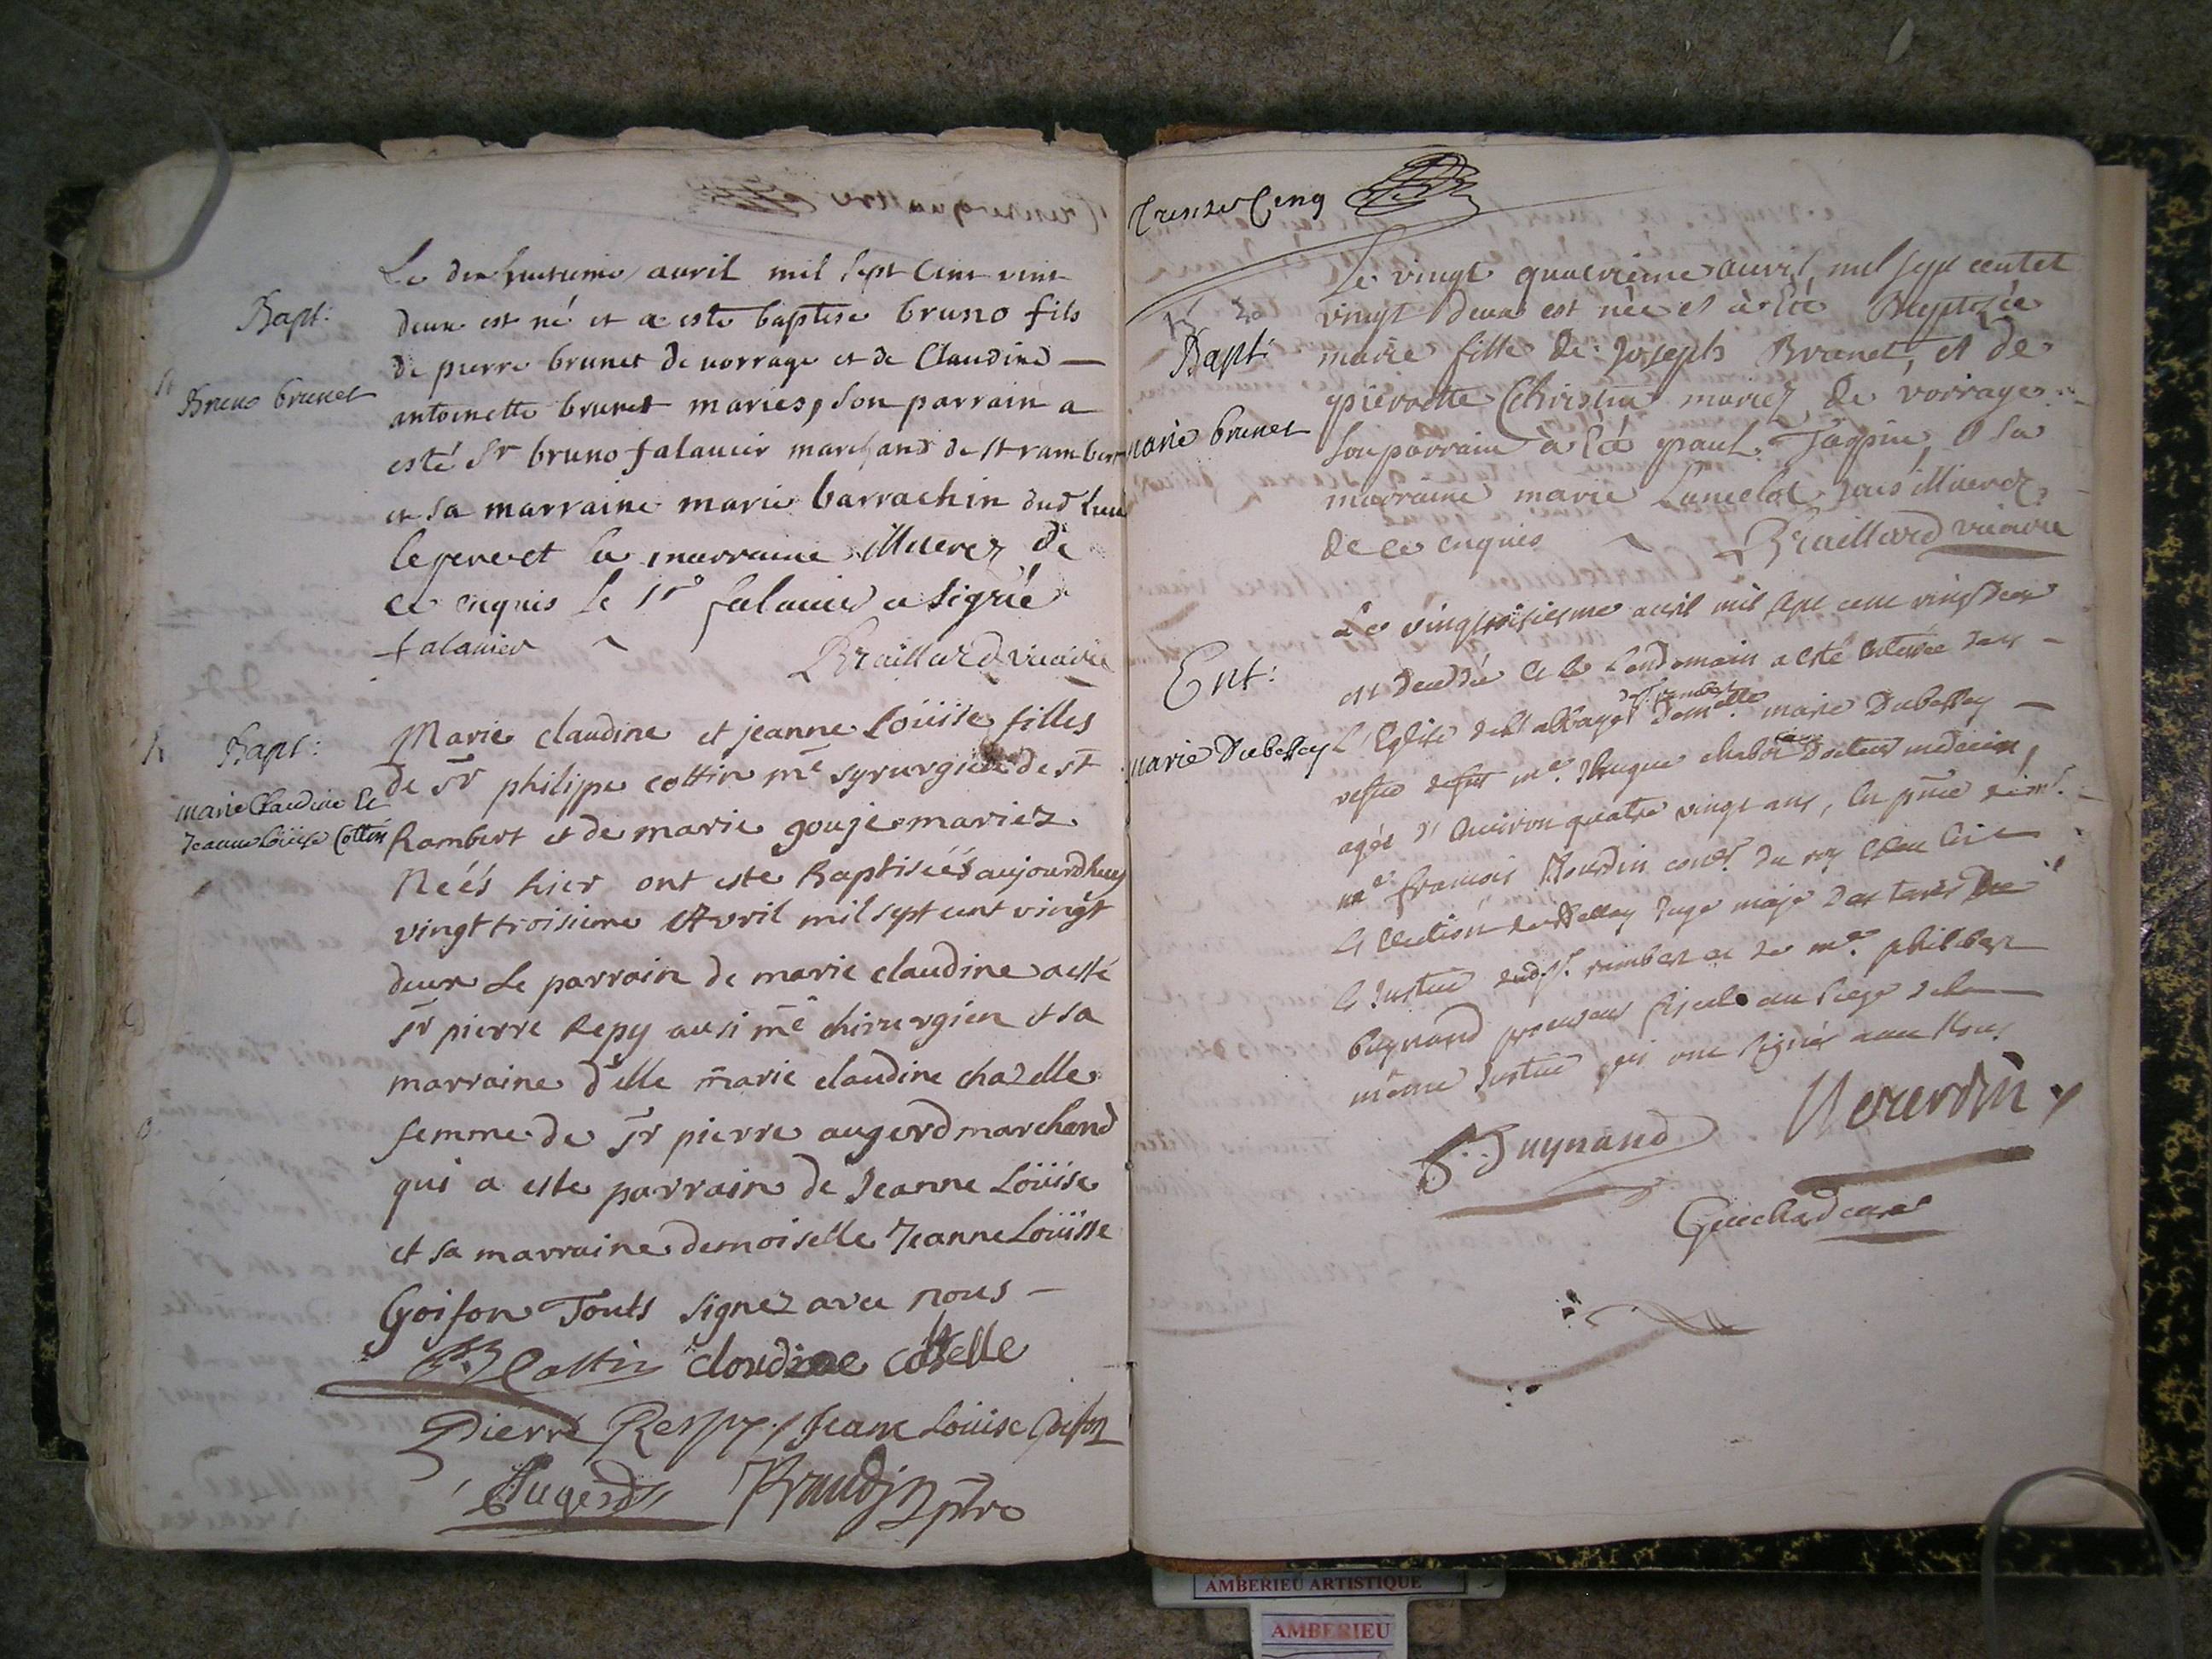 Bapt:
Bruno brunet
Le dixhuitieme avril mil sept cent vint
deux est né et a esté baptise bruno fils
de pierre brunet de vorrage et de Claudine —
antoinette brunet mariés, son parrain a
esté Sr bruno falavier marchand de St rambert
et sa marraine marie barrachin dud lieu
le pere et la marraine illiterez de
ce enquis le Sr falavier a signé
falavier Braillard vicaire
Bapt:
marie Claudine Et
Jeanne Loüise Cottin
Marie claudine et jeanne Loüise filles
de Sr philippe cottin me syrurgien de st
Rambert et de marie gouje mariez
Neés hier ont este Baptisées aujourdhuy
vingt troisieme Avril mil sept cent vingt
deux Le parrain de marie claudine a esté
Sr pierre Repy ausi me chirurgien et sa
marraine d'elle marie claudine chazelle
femme de Sr pierre augerd marchand
qui a este parrain de Jeanne Loüise
et sa marraine demoiselle Jeanne Loüisse
Goifon Touts signez avec nous —
Cottin cloudine
Pierre Respy Jeane Loüise Goifon
Augerd ptre
Trente Cinq
Bapt:
marie brunet
Le vingt quatrieme avril mil sept cent et
vingt deux est née et à été Baptizée
marie fille de Joseph Brunet, et de
pierrette Christin mariez de vorrage
son parrain à été paul Jagpin et sa
marraine marie Lancelot illiterez
de ce enquis Braillard vicaire
Ent:
marie Dubessey
Le vingtroisiesme avril mil sept cent vingt deux
est decedée et le lendemain a esté enterrée dans —
L'Eglise de l'abbaye de St rambert demelle marie Dubessey —
vefue de fut me chabot docteur medecin,
agée d'environ quatre vingt ans, en pnce de mr
me francois Mourdin coner du roy eslu en
L'Election de Belley Juge maje des terres de
la Justice dud St rambert et de me philibert
buynand procureur fiscal au siege de la
même Justice qui ont signés avec Nous
P. Buynand
Guichard curé
AMBERIEU ARTISTIQUE
AMBERIEU